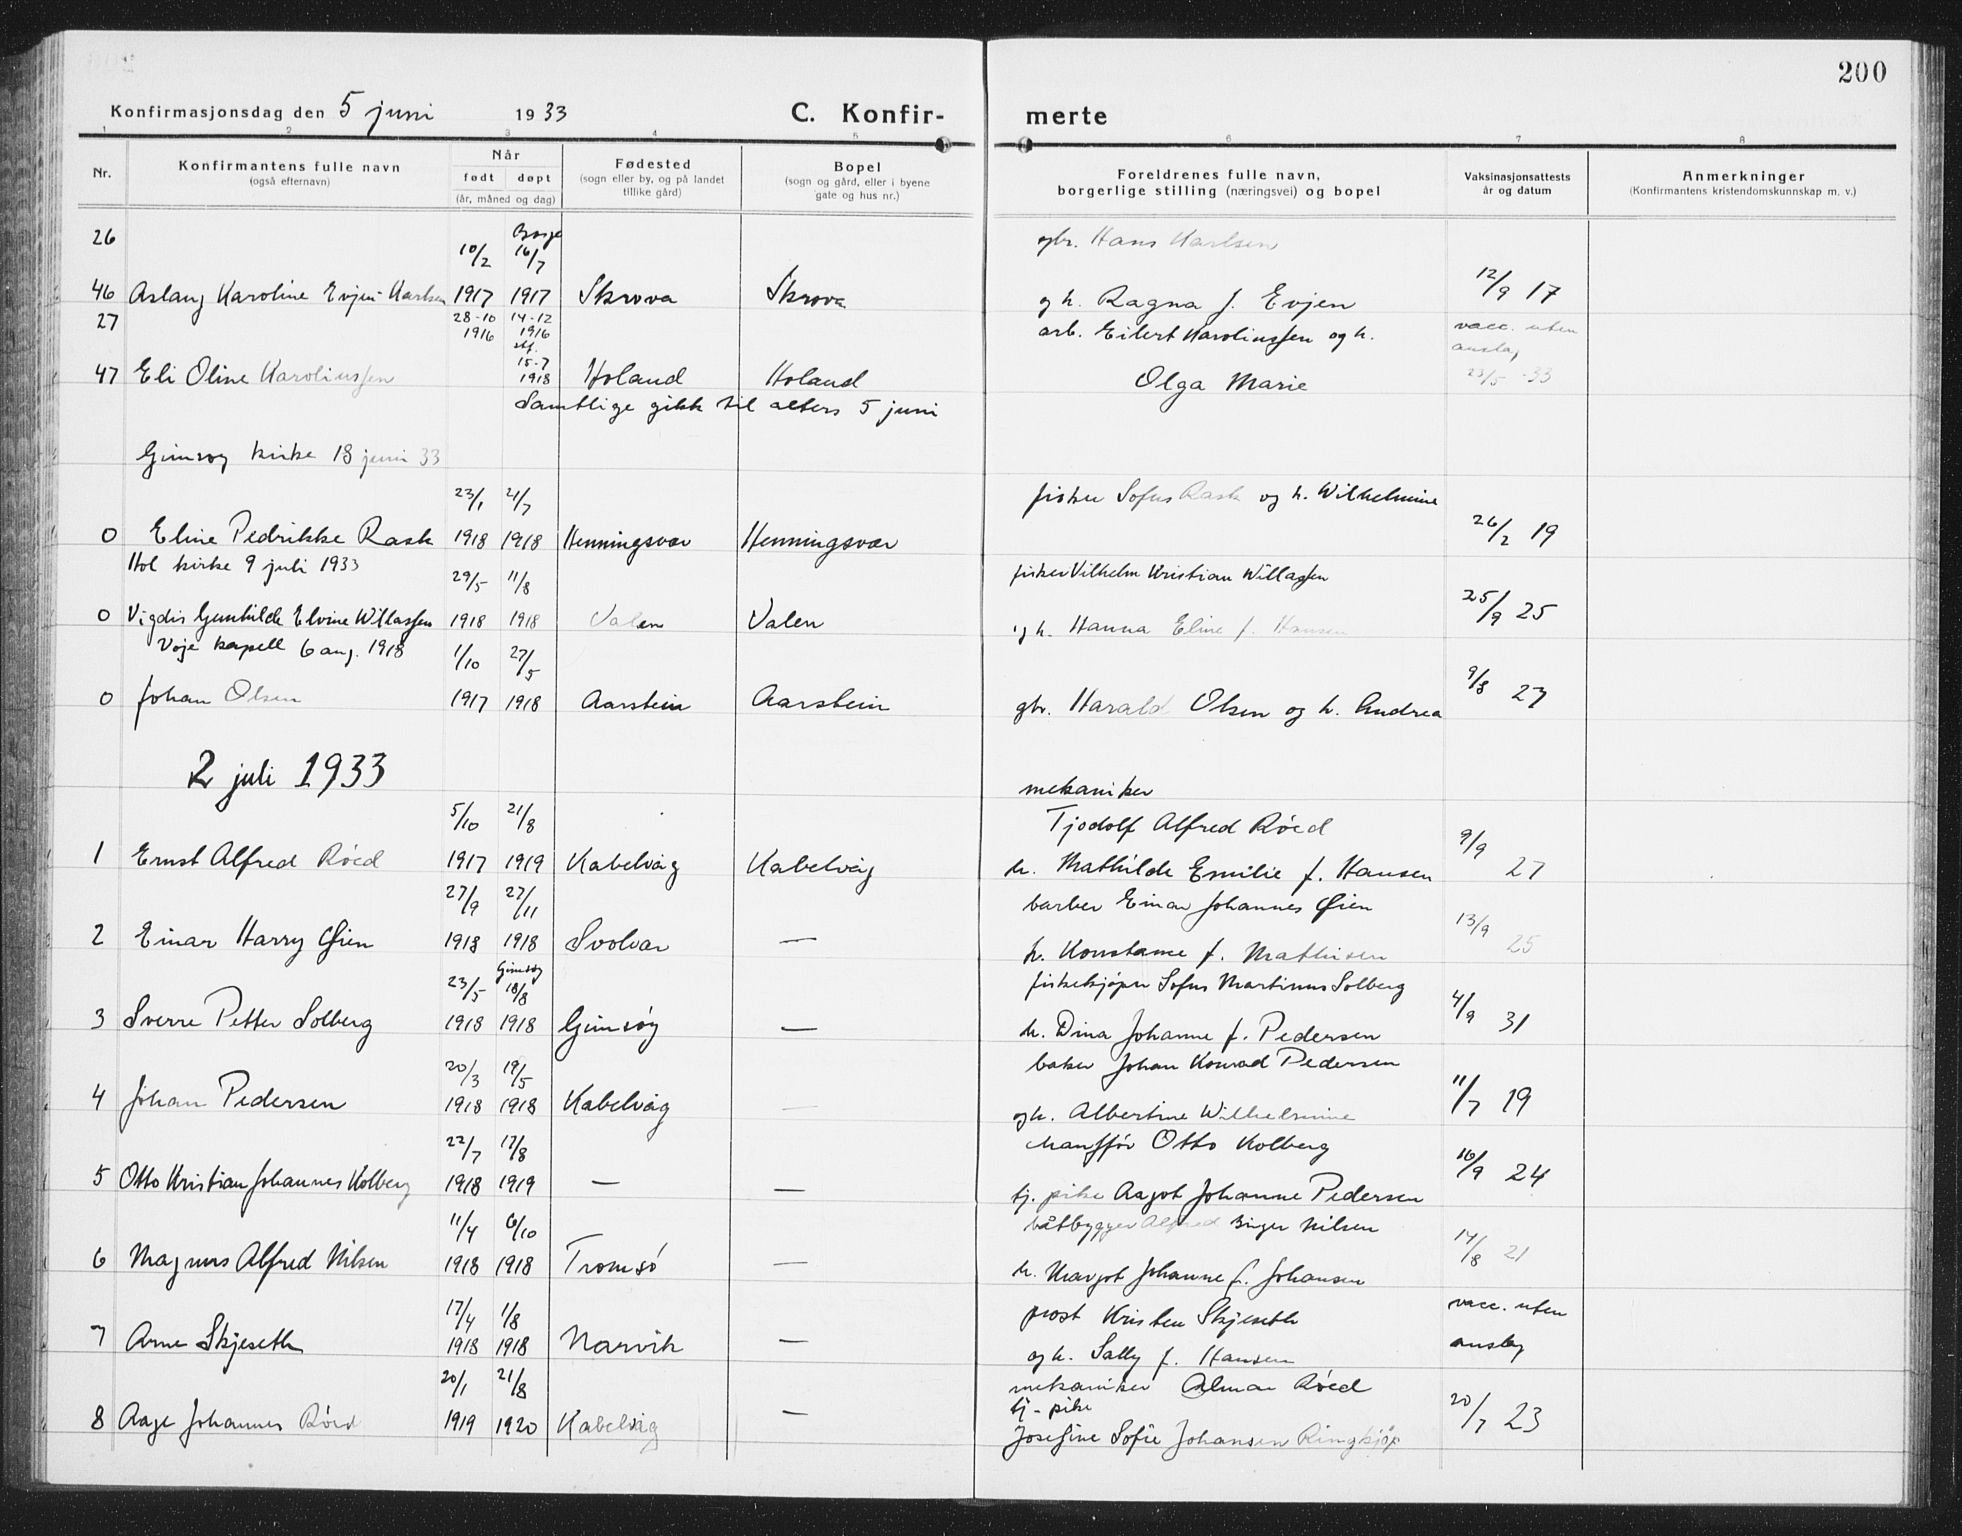 200
Konfirmasjonsdag den 5 juni 1933 C. Konfir- merte
1 2 3 4 5 6 7 8
Nr. Konfirmantens fulle navn (også efternavn) Når født døpt (år, måned og dag) Fødested (sogn eller by, og på landet tillike gård) Bopel (sogn og gård, eller i byene gate og hus nr.) Foreldrenes fulle navn, borgerlige stilling (næringsvei) og bopel Vaksinasjonsattests år og datum Anmerkninger (Konfirmantens kristendomskunnskap m. v.)
26 10/2 16/7 gbr. Hans Karlsen
46 Aslaug Karoline Evjen-Karlsen 1917 1917 Skrova Skrova og h. Ragna f. Evjen 12/9 17
27 28-10 1916 14-12 1916 arb. Eilert Karoliussen og h. vacc. uten anslag
47 Eli Oline Karoliussen stf. 15-7 1918 Holand Holand Olga Marie 23/5 -33
Samtlige gikk til alters 5 juni
Gimsøy kirke 18 juni 33
23/1 21/7 fisker Sofus Rask og h. Wilhelmine
0 Eline Pedrikke Rask 1918 1918 Henningsvær Henningsvær 26/2 19
Hol kirke 9 juli 1933 29/5 11/8 fisker Vilhelm Kristian Willassen
0 Vigdis Gunhilde Elvine Willassen 1918 1918 Valen Valen og h. Hanna Eline f. Hansen 25/9 25
kapell 6 aug. 1918 1/10 27/5
0 Johan Olsen 1917 1918 Aarstein Aarstein gbr. Harald Olsen og h. Andrea 9/8 27
2 juli 1933
mekaniker
5/10 21/8 Tjodolf Alfred Røed
1 Ernst Alfred Røed 1917 1919 Kabelvåg Kabelvåg h. Mathilde Emilie f. Hansen 9/9 27
27/9 27/11 barber Einar Johannes Øien
2 Einar Harry Øien 1918 1918 Svolvær — h. Konstanse f. Mathisen 13/9 25
23/5 Gimsøy 18/8 fiskekjøper Sofus Martinus Solberg
3 Sverre Petter Solberg 1918 1918 Gimsøy — h. Dina Johanne f. Pedersen 4/9 31
20/3 19/5 baker Johan Konrad Pedersen
4 Johan Pedersen 1918 1918 Kabelvåg — og h. Albertine Wilhelmine 11/7 19
22/7 17/8 Otto Kolberg
5 Otto Kristian Johannes Kolberg 1918 1919 — — tj. pike Aagot Johanne Pedersen 16/9 24
11/4 6/10 båtbygger Alfred Birger Nilsen
6 Magnus Alfred Nilsen 1918 1918 Tromsø — h. Margot Johanne f. Johansen 14/8 21
17/4 1/8 prost Kristen Skjeseth vacc. uten
7 Arne Skjeseth 1918 1918 Narvik — og h. Sally f. Hansen anslag
20/1 21/8 mekaniker Almar Røed
tj-pike
8 Aage Johannes Røed 1919 1920 Kabelvåg — Josefine Sofie Johansen Ringkjøp 20/7 23